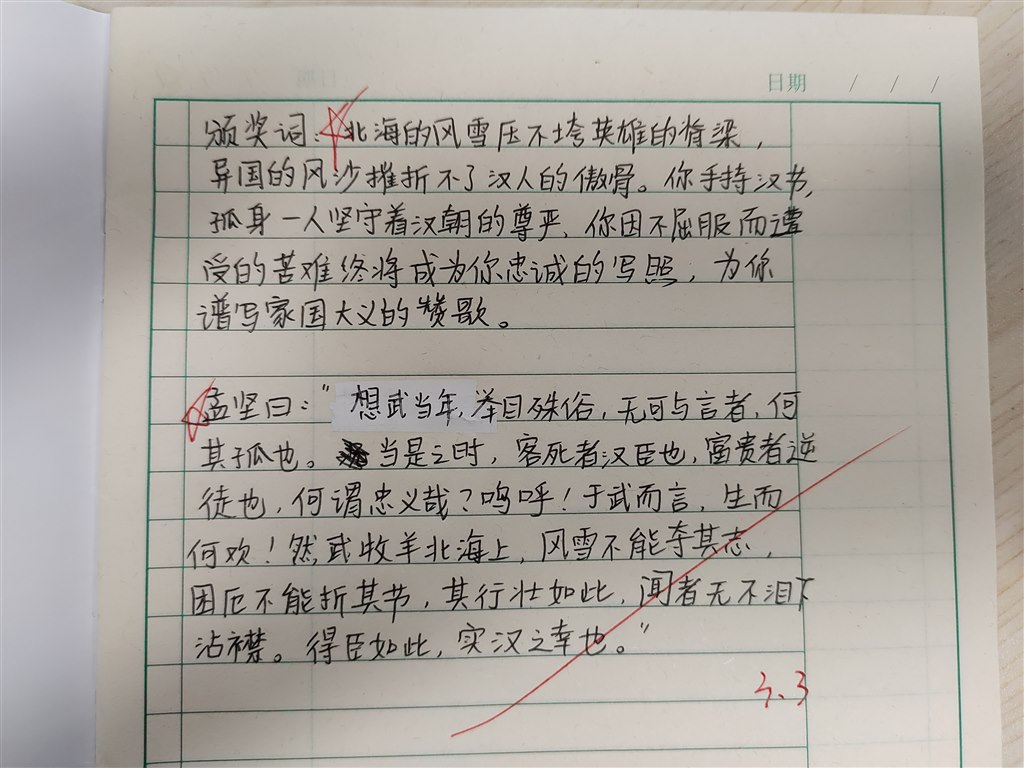 日期 / / /
颁奖词：北海的风雪压不垮英雄的脊梁，
异国的风沙摧折不了汉人的傲骨。你手持汉节，
孤身一人坚守着汉朝的尊严，你因不屈服而遭
受的苦难终将成为你忠诚的写照，为你
谱写家国大义的赞歌。
孟坚曰："想武当年，举目殊俗，无可与言者，何
其孤也。当是之时，客死者汉臣也，富贵者逆
徒也，何谓忠义哉？呜呼！于武而言，生而
何欢！然武牧羊北海上，风雪不能夺其志，
困厄不能折其节，其行壮如此，闻者无不泪下
沾襟。得臣如此，实汉之幸也。"
3.3